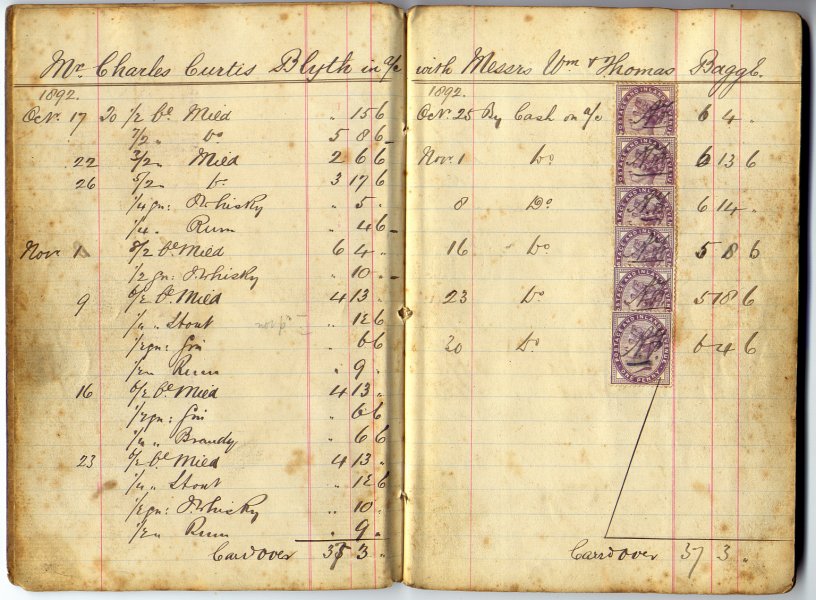 Mr. Charles Curtis Blyth in a/c
1892.
Octr. 17 To 1/2 be Mild " 15 6
7/2 " Do 5 8 6
22 3/2 " Mild 2 6 6
26 5/2 " Do 3 17 6
1/4 gn: I. Whisky " 5 "
1/4 " Rum " 4 6
Novr. 1 8/2 be Mild 6 4 "
1/2 gn: I. Whisky " 10 "
9 6/2 be Mild 4 13 "
" Stout " 12 6
1/2 gn: Gin " 6 6
Rum " 9 "
16 6/2 be Mild 4 13 "
1/2 gn: Gin " 6 6
" Brandy " 6 6
23 6/2 be Mild 4 13 "
" Stout " 12 6
1/2 gn: I. Whisky " 10 "
Rum " 9 "
Card over 37 3 "
with Messrs Wm & Thomas Bagge.
1892.
Octr. 25 By Cash on a/c 6 4 "
Novr. 1 Do 6 13 6
8 Do 6 14 "
16 Do 5 8 6
23 Do 5 18 6
30 Do 6 4 6
POSTAGE AND INLAND REVENUE
ONE PENNY
Carrd over 37 3 "